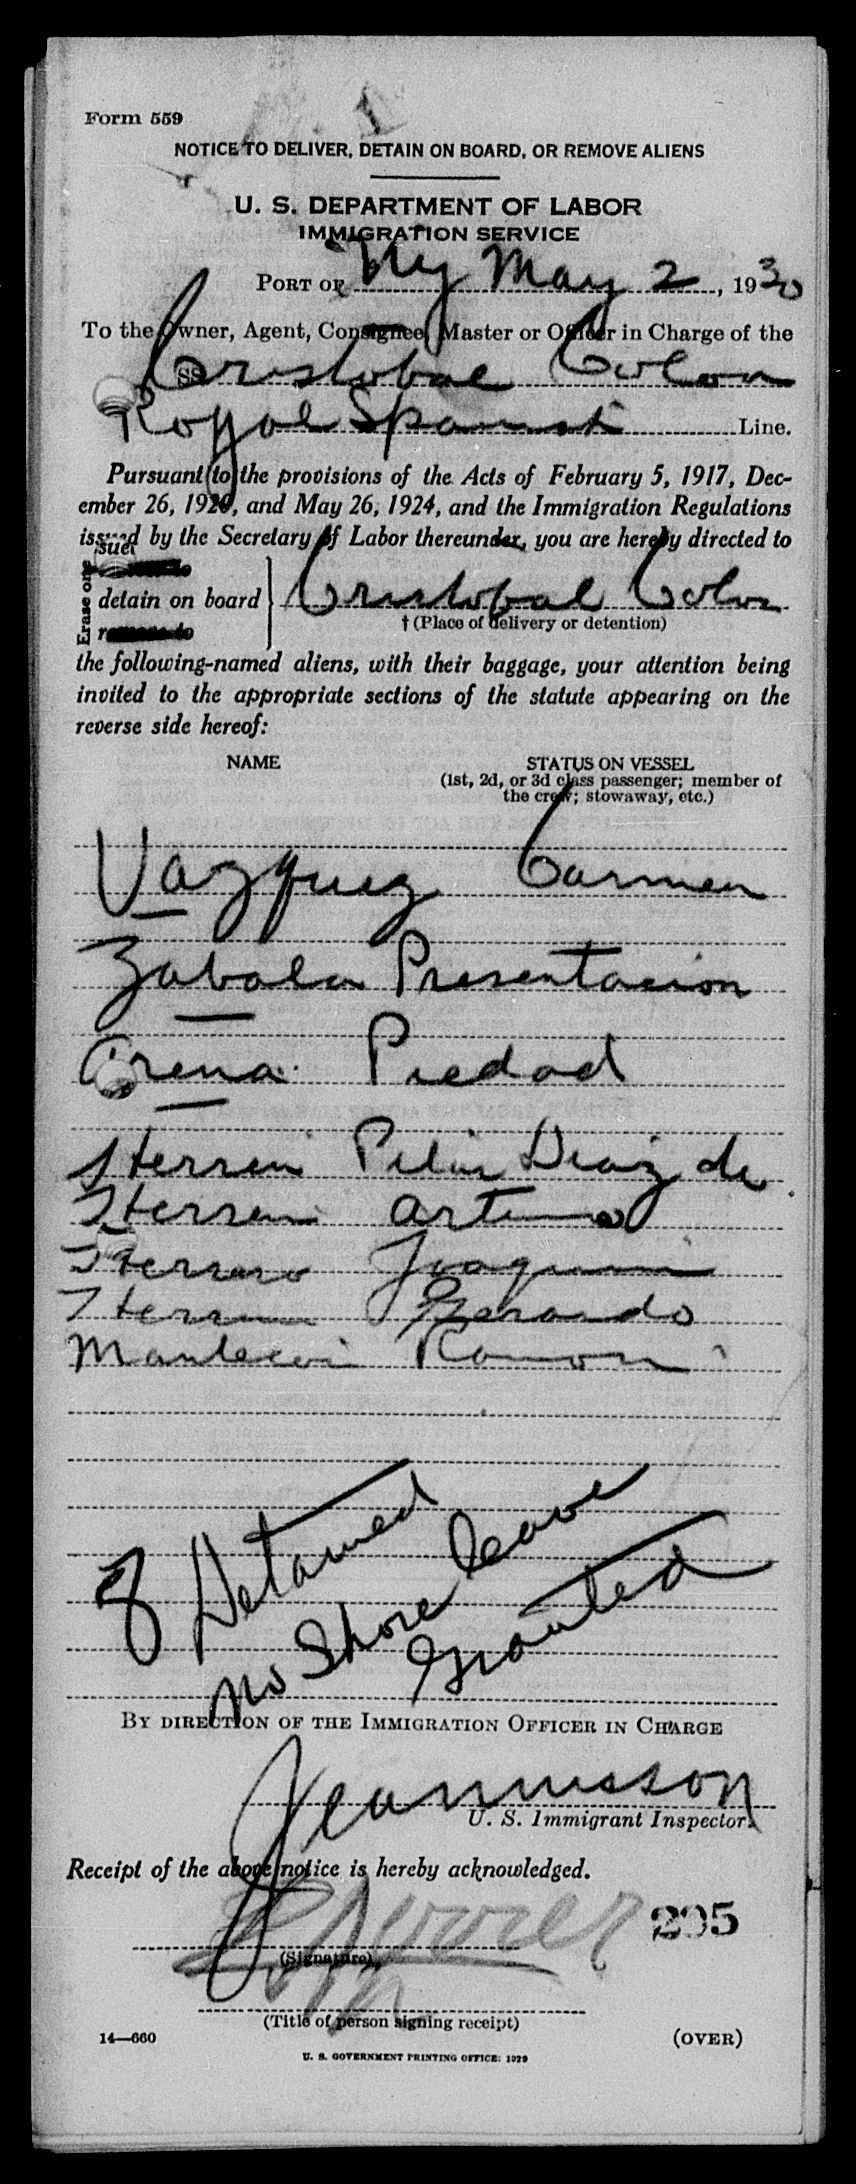 Form 559
NOTICE TO DELIVER, DETAIN ON BOARD, OR REMOVE ALIENS
U. S. DEPARTMENT OF LABOR
IMMIGRATION SERVICE
PORT OF Ny May 2, 1930
To the Owner, Agent, Consignee, Master or Officer in Charge of the
SS Cristobal Colon
Royal Spanish Line.
Pursuant to the provisions of the Acts of February 5, 1917, Dec-
ember 26, 1920, and May 26, 1924, and the Immigration Regulations
issued by the Secretary of Labor thereunder, you are hereby directed to
Erase one
detain on board Cristobal Colon
† (Place of delivery or detention)
the following-named aliens, with their baggage, your attention being
invited to the appropriate sections of the statute appearing on the
reverse side hereof:
NAME STATUS ON VESSEL
(1st, 2d, or 3d class passenger; member of
the crew; stowaway, etc.)
Vazquez Carmen
Zabala Presentacion
Arena Piedad
Pilar Diaz de
Arturo
Joaquin
Gerardo
Mantecon Ramon
8 Detained
no Shore leave
Granted
BY DIRECTION OF THE IMMIGRATION OFFICER IN CHARGE
U. S. Immigrant Inspector.
Receipt of the above notice is hereby acknowledged.
295
(Signature)
(Title of person signing receipt)
14—660 (OVER)
U. S. GOVERNMENT PRINTING OFFICE: 1929